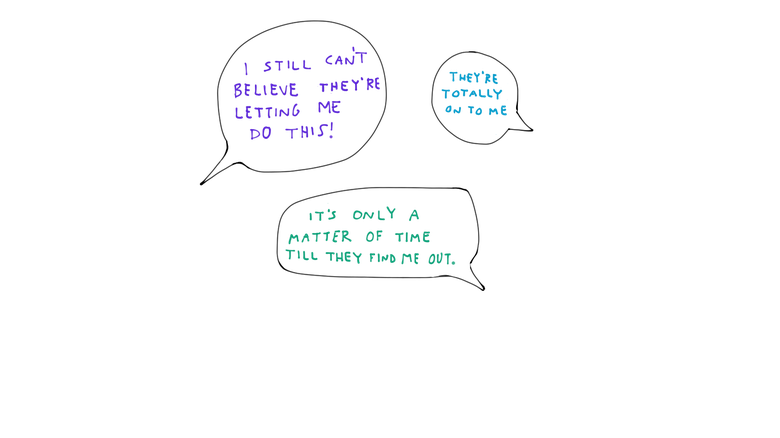 I STILL CAN'T
BELIEVE THEY'RE
LETTING ME
DO THIS!
THEY'RE
TOTALLY
ON TO ME
IT'S ONLY A
MATTER OF TIME
TILL THEY FIND ME OUT.